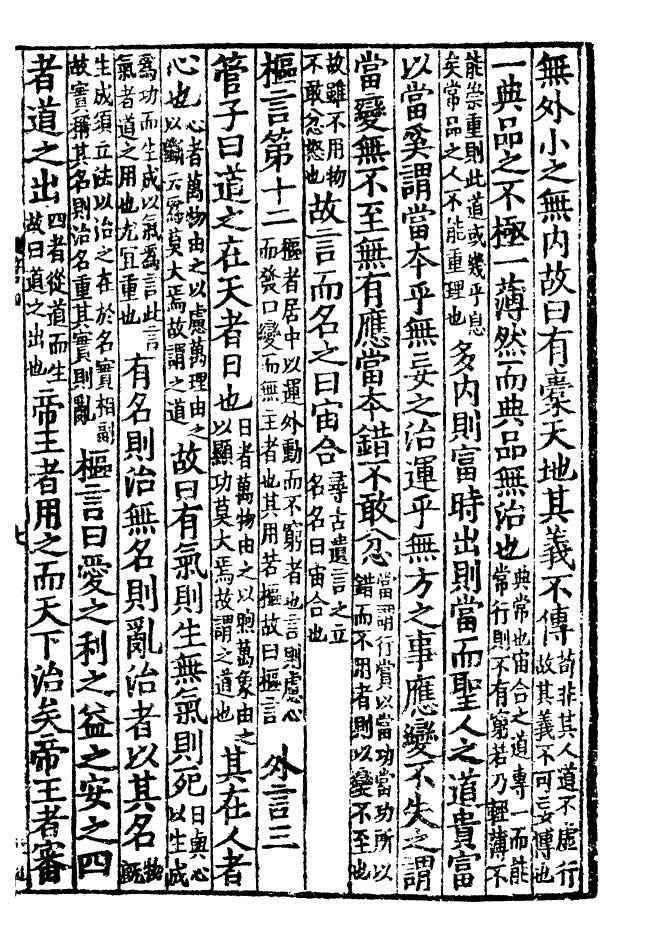 無外小之無内故曰有橐天地其義不傳苟非其人道不虛行故其義不可妄傳也
一典品之不極一薄然而典品無治也典常也宙合之道專一而能常行則不有窮若乃輕薄不
能崇重則此道或幾乎息矣常品之人不能重理也多内則富時出則當而聖人之道貴富
以當奚謂當夲乎無妄之治運乎無方之事應變不失之謂
當變無不至無有應當夲錯不敢忿當謂行賞以當功當功所以錯而不用者則以變不至也
故雖不用物不敢忿怒也故言而名之曰宙合尋古遺言之立名名曰宙合也
樞言第十二樞者居中以運外動而不窮者也言則慮心而發口變而無主者也其用若樞故曰樞言 外言三
管子曰道之在天者日也日者萬物由之以煦萬象由之以顯功莫大焉故謂之道也其在人者
心也心者萬物由之以慮萬理由之以斷云爲莫大焉故謂之道故曰有氣則生無氣則死日與心以生成
爲功而生成以氣爲言此言氣者道之用也尤宜重也有名則治無名則亂治者以其名物旣
生成須立法以治之在於名實相副故實稱其名則治名重其實則亂樞言曰愛之利之益之安之四
者道之出四者從道而生故曰道之出也帝王者用之而天下治矣帝王者審